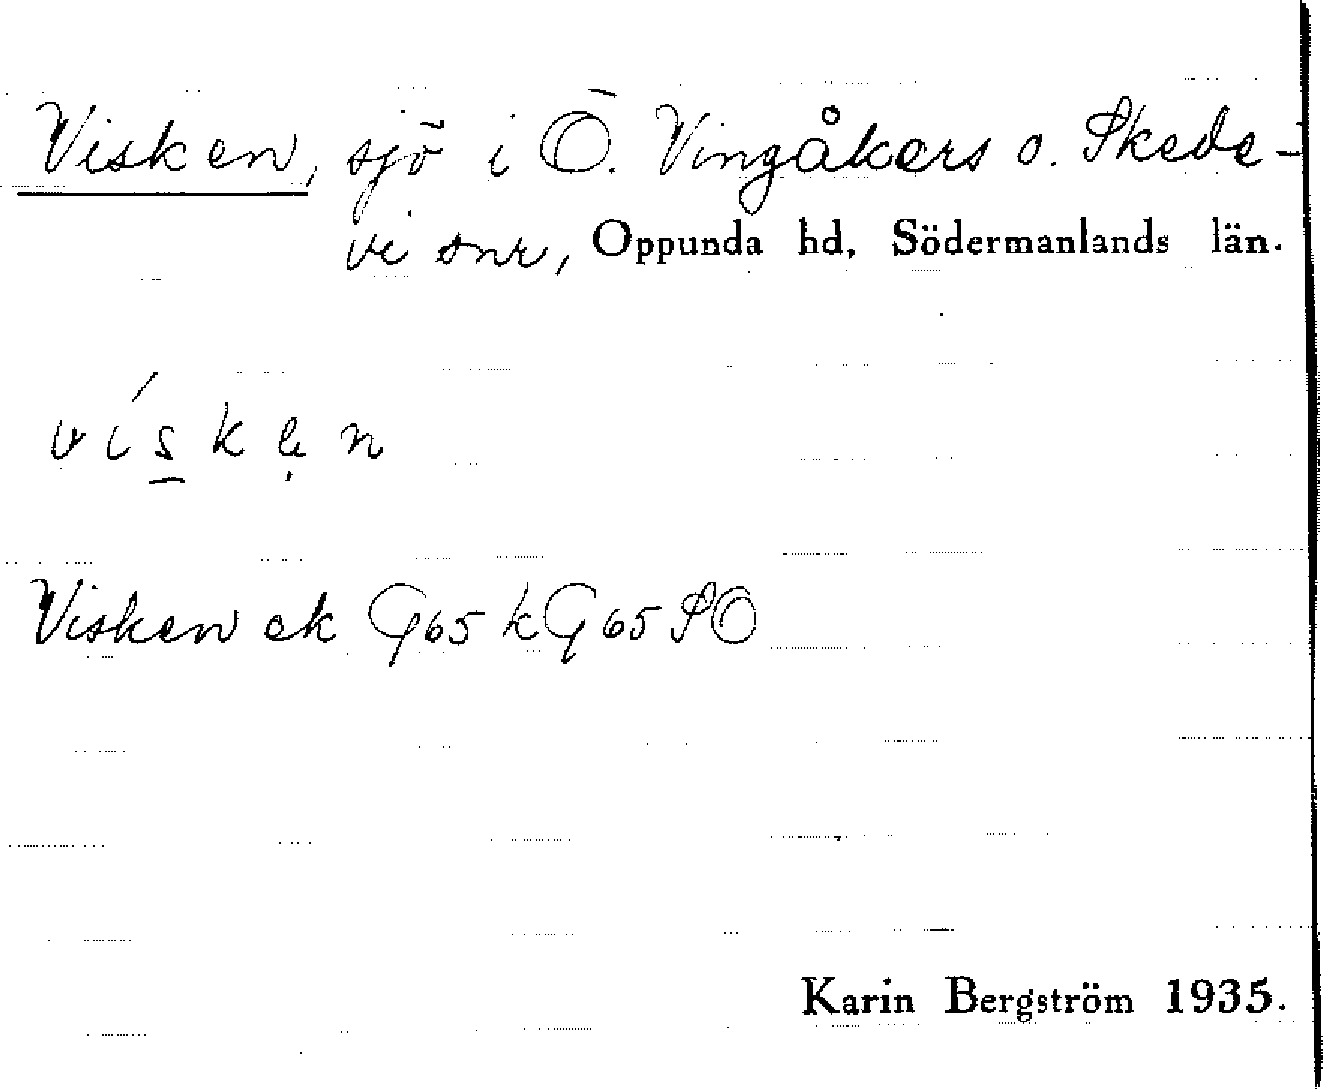 Visken, sjö i Ö. Vingåkers o. Skede-
vi snr, Oppunda hd, Södermanlands län.
vísken
Visken ek G65 k G65 SO
Karin Bergström 1935.